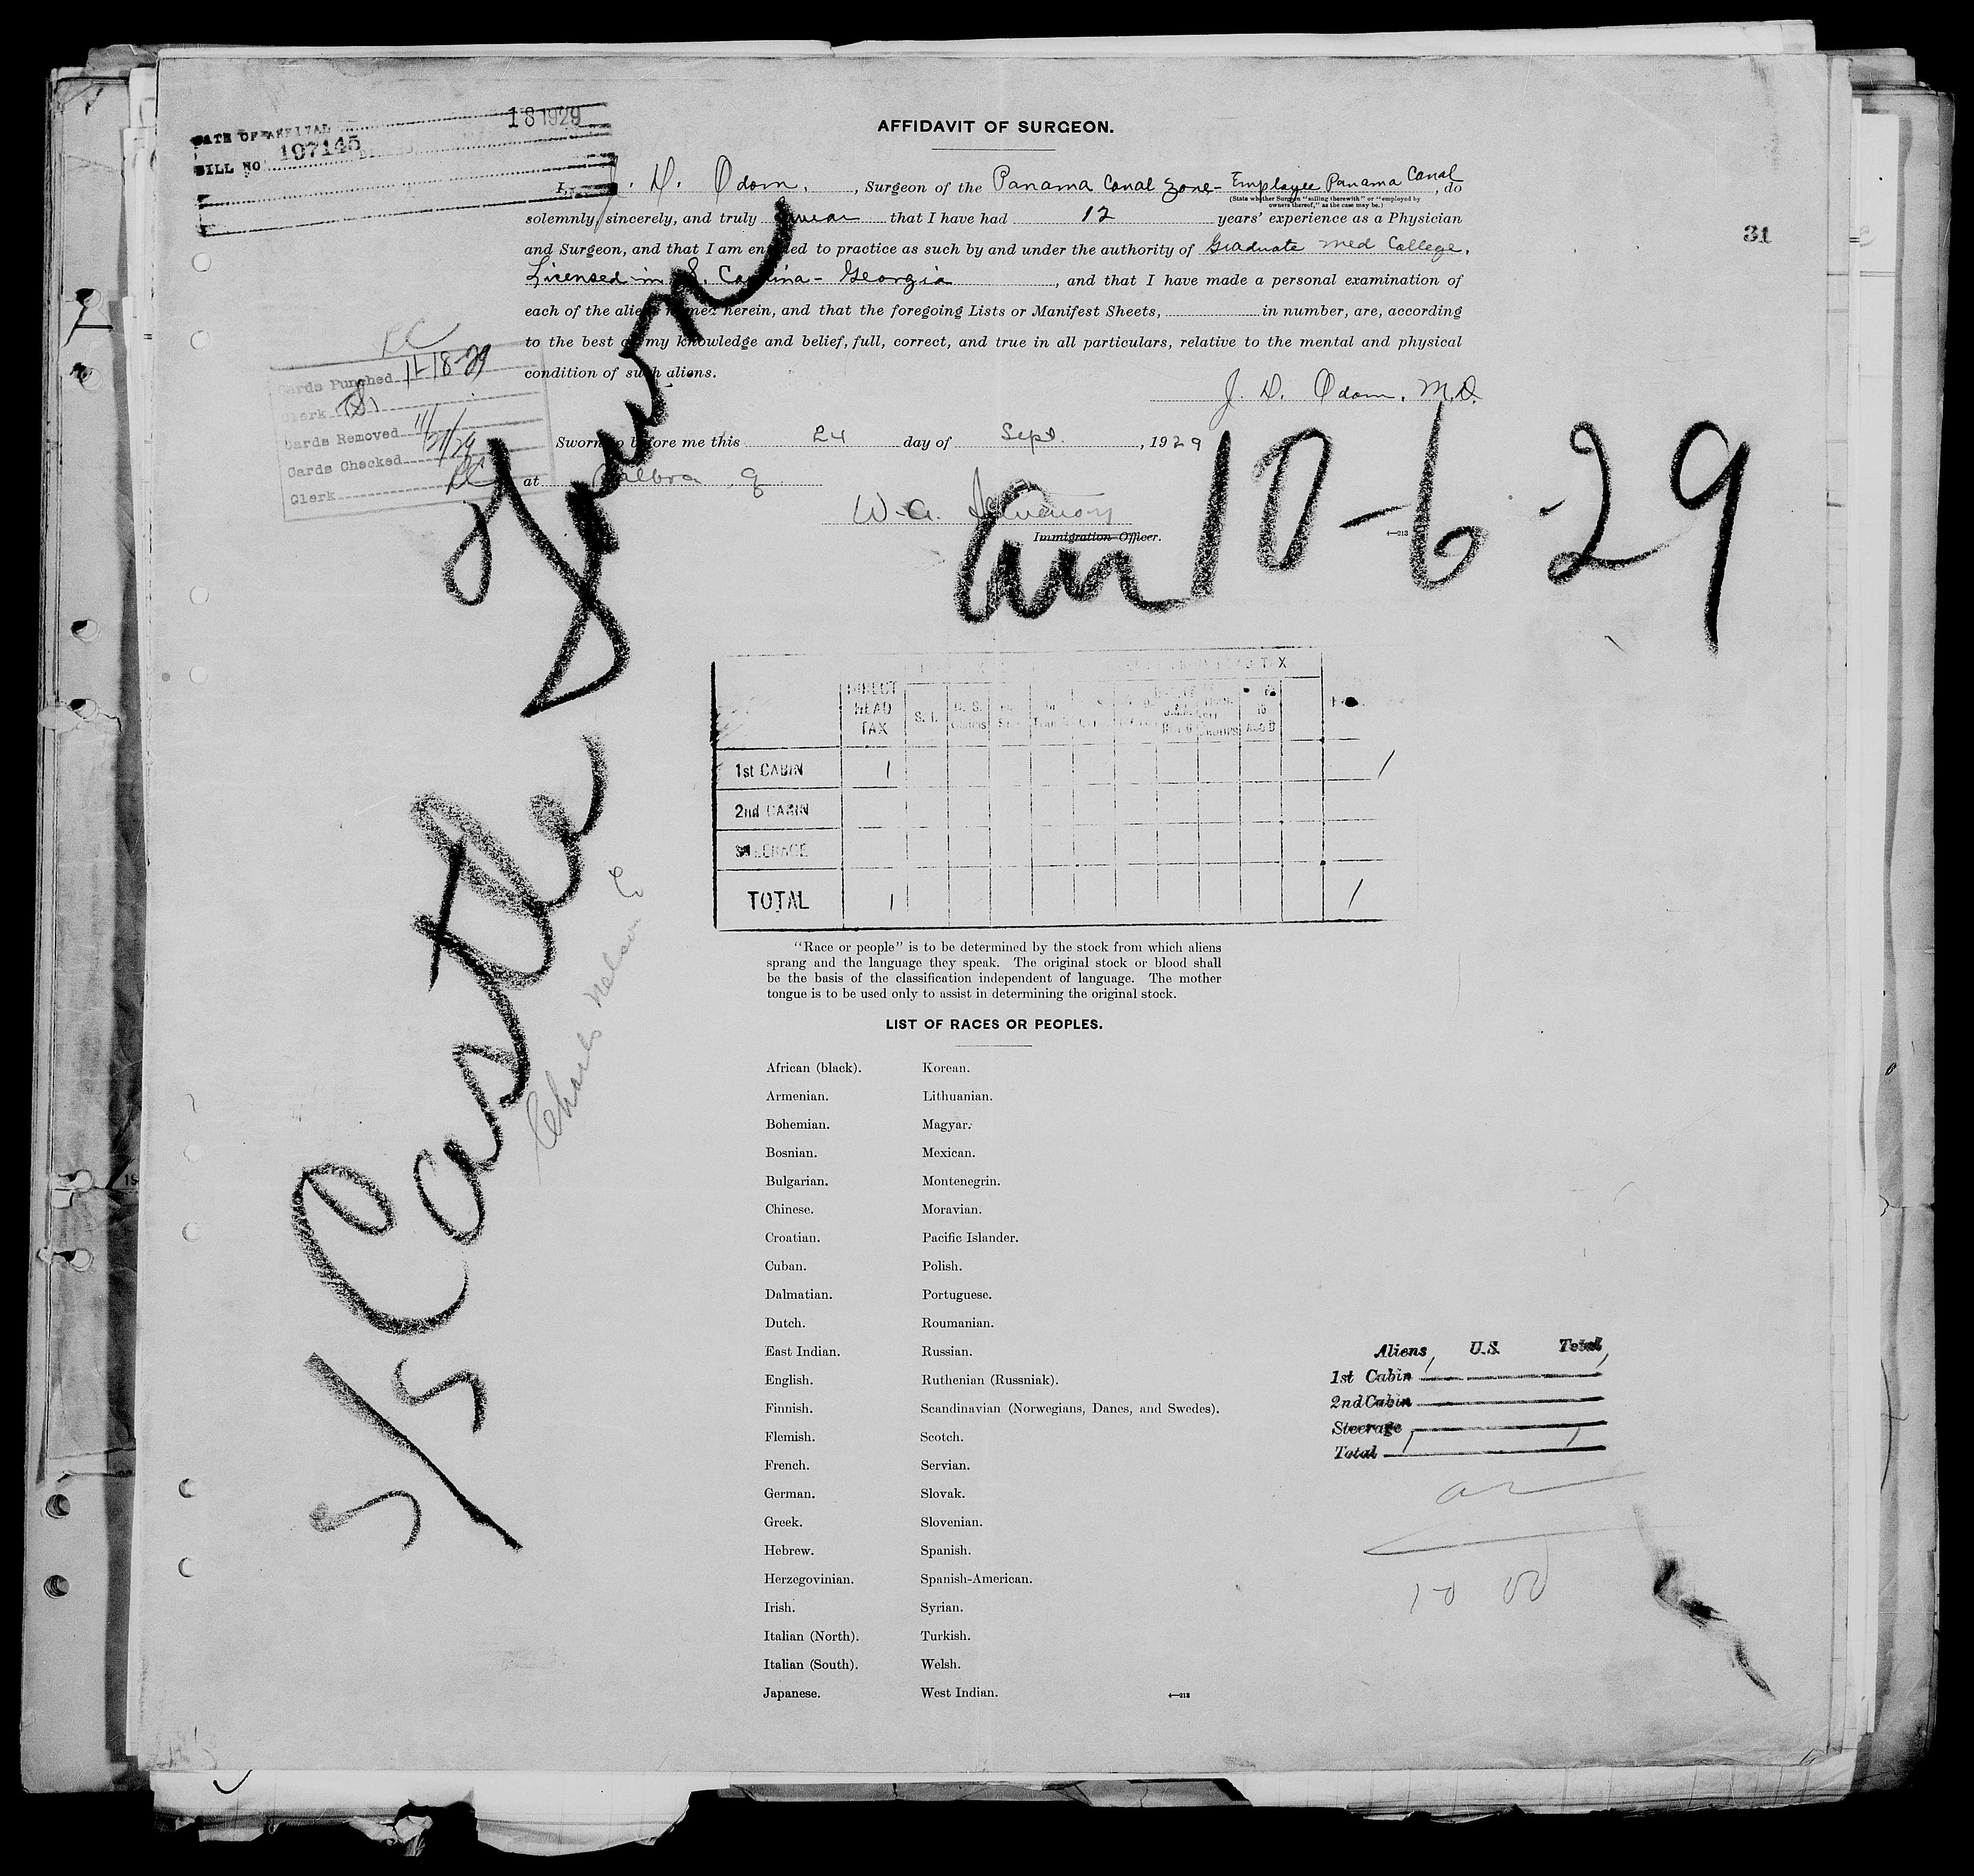 18 1929
DATE OF ARRIVAL
BILL NO 107145
AFFIDAVIT OF SURGEON.
I, J. D. Odom, Surgeon of the Panama Canal Zone - Employee Panama Canal, do
(State whether Surgeon "sailing therewith" or "employed by
owners thereof," as the case may be.)
solemnly, sincerely, and truly swear that I have had 12 years' experience as a Physician
and Surgeon, and that I am entitled to practice as such by and under the authority of Graduate Med College.
Licensed in S. Carolina - Georgia, and that I have made a personal examination of
each of the aliens named herein, and that the foregoing Lists or Manifest Sheets, in number, are, according
to the best of my knowledge and belief, full, correct, and true in all particulars, relative to the mental and physical
condition of such aliens.
J. D. Odom, M.D.
31
Sworn to before me this 24 day of Sept., 1929
at Balboa
W. A.
Immigration Officer.
4—213
Cards Punched 11-18-29
Clerk
Cards Removed 11/21/29
Cards Checked
Clerk
10-6-29
S/S Castle Town
Charls Nelson
DIRECT HEAD TAX
S. I.
1st CABIN 1 1
2nd CABIN
STEERAGE
TOTAL 1 1
"Race or people" is to be determined by the stock from which aliens
sprang and the language they speak. The original stock or blood shall
be the basis of the classification independent of language. The mother
tongue is to be used only to assist in determining the original stock.
LIST OF RACES OR PEOPLES.
African (black). Korean.
Armenian. Lithuanian.
Bohemian. Magyar.
Bosnian. Mexican.
Bulgarian. Montenegrin.
Chinese. Moravian.
Croatian. Pacific Islander.
Cuban. Polish.
Dalmatian. Portuguese.
Dutch. Roumanian.
East Indian. Russian.
English. Ruthenian (Russniak).
Finnish. Scandinavian (Norwegians, Danes, and Swedes).
Flemish. Scotch.
French. Servian.
German. Slovak.
Greek. Slovenian.
Hebrew. Spanish.
Herzegovinian. Spanish-American.
Irish. Syrian.
Italian (North). Turkish.
Italian (South). Welsh.
Japanese. West Indian.
4—213
Aliens U.S. Total
1st Cabin 1 1
2nd Cabin
Steerage
Total 1 1